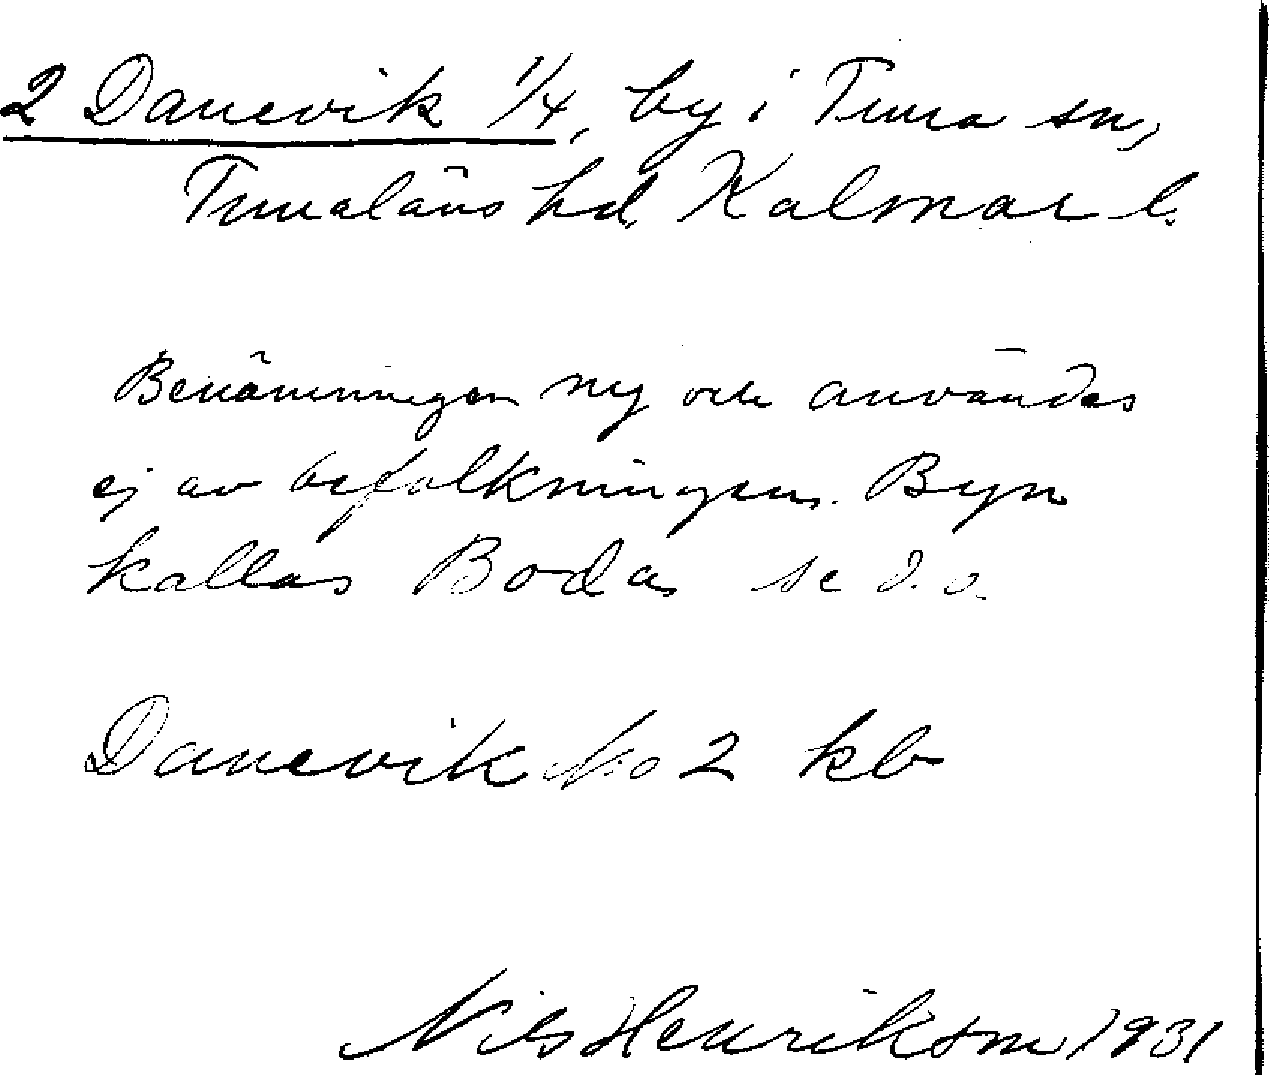 2 Danevik 1/4, by i Tuna sn,
Tunaläns hd, Kalmar l.
Benämningen ny och användes
ej av befolkningen. Byn
kallas Boda, se d.o.
Danevik No 2 kb
Nils Henriksson 1931